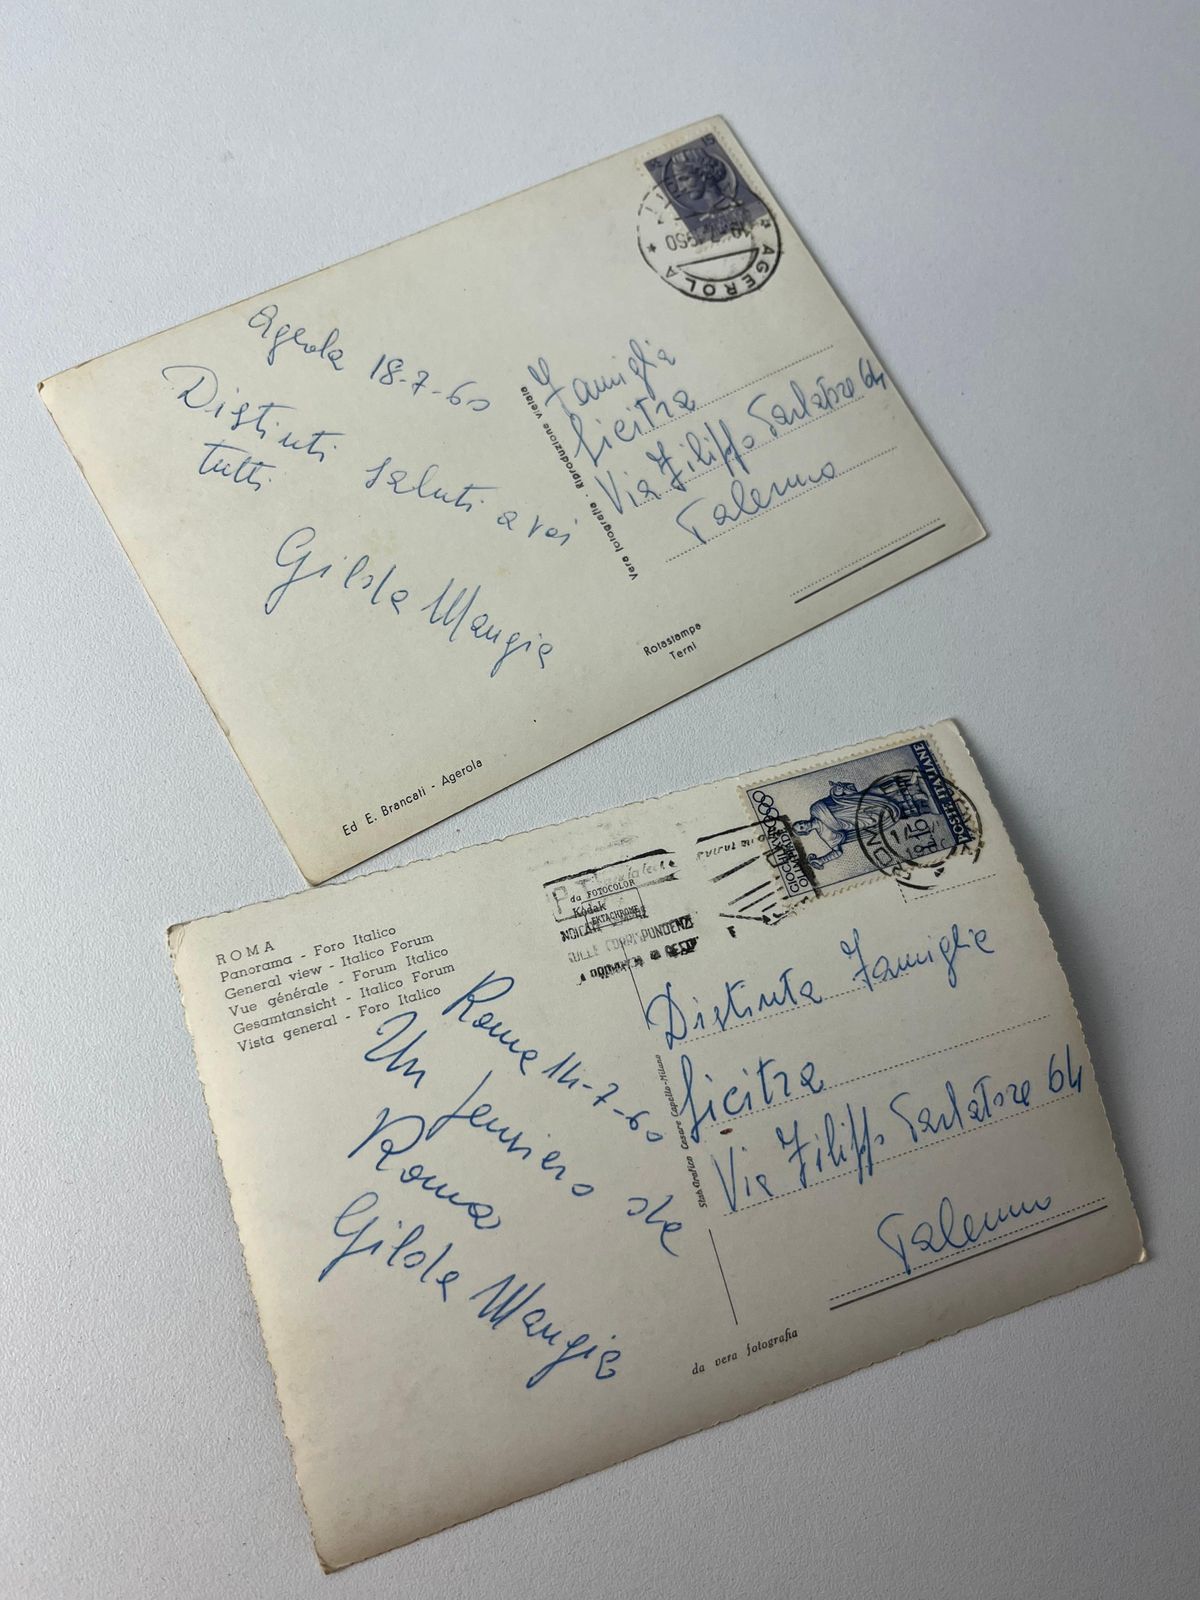 15
AGEROLA
Agerola 18-7-60
Distinti saluti a voi
tutti
Gilda Mangia
Vera fotografia - Riproduzione vietata
Famiglia
Licitra
Via Filippo Parlatore 64
Palermo
Rotastampa
Terni
Ed E. Brancati - Agerola
POSTE ITALIANE
ROMA
ROMA
Panorama - Foro Italico
General view - Italico Forum
Vue générale - Forum Italico
Gesamtansicht - Italico Forum
Vista general - Foro Italico
da FOTOCOLOR
Kodak
EKTACHROME
Roma 14-7-60
Un pensiero da
Roma
Gilda Mangia
Stab Grafico Cesare Capello-Milano
Distinta Famiglia
Licitra
Via Filippo Parlatore 64
Palermo
da vera fotografia